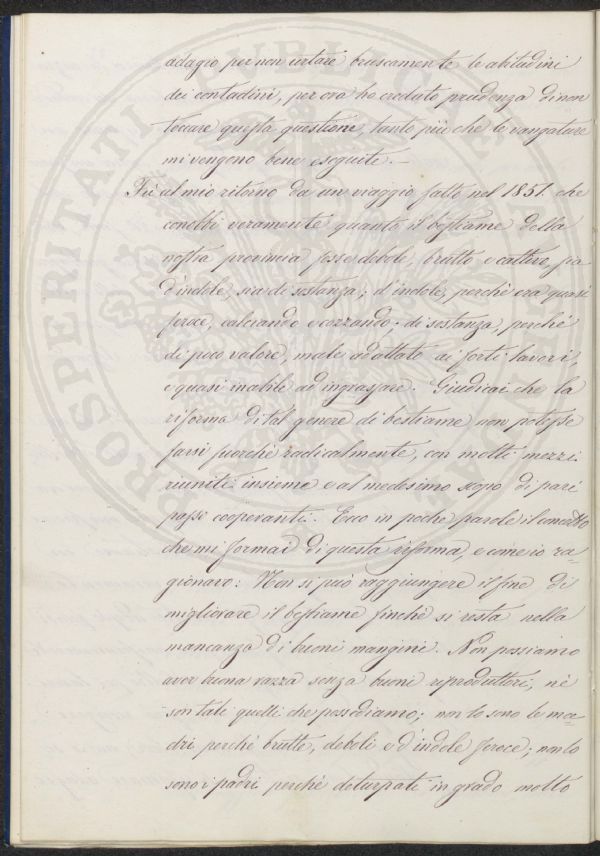 adagio per non urtare bruscamente le abitudini
dei contadini, per ora ho creduto prudenza di non
toccare questa questione, tanto più che le vangature
mi vengono bene eseguite. —
Fù al mio ritorno da un viaggio fatto nel 1851. che
conobbi veramente quanto il bestiame della
nostra provincia fosse debole, brutto e cattivo, sia
d'indole, sia di sostanza; d'indole, perchè era quasi
feroce, calciando e cozzando: di sostanza, perchè
di poco valore, male adattato ai forti lavori,
e quasi inabile ad ingrassare. Giudicai che la
riforma di tal genere di bestiame, non potesse
farsi fuorchè radicalmente, con molti mezzi
riuniti insieme e al medesimo scopo di pari
passi cooperanti. Ecco in poche parole il concetto
che mi formai di questa riforma, e come io ra=
gionavo: Non si può raggiungere il fine di
migliorare il bestiame finchè si resta nella
mancanza di buoni mangimi. Non possiamo
aver buona razza senza buoni riproduttori, nè
son tali quelli che possediamo; non lo sono le ma=
dri perchè brutte, deboli e d'indole feroce; non lo
sono i padri perchè deturpati in grado molto
PROSPERITATI PUBLICAE